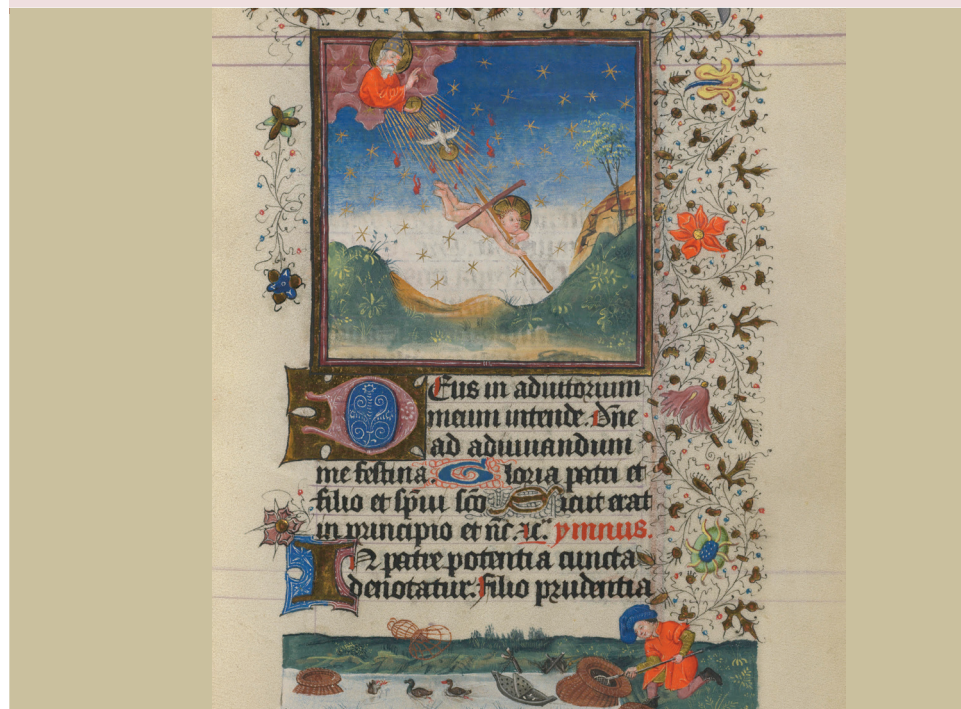 Deus in adiutorium
meum intende. Dñe
ad adiuuandum
me festina. Gloria patri et
filio et sp̄ui scō Sicut erat
in principio et nc̄. ⁊c̄. ymnus.
IN patre potentia cuncta
denotatur. filio prudentia